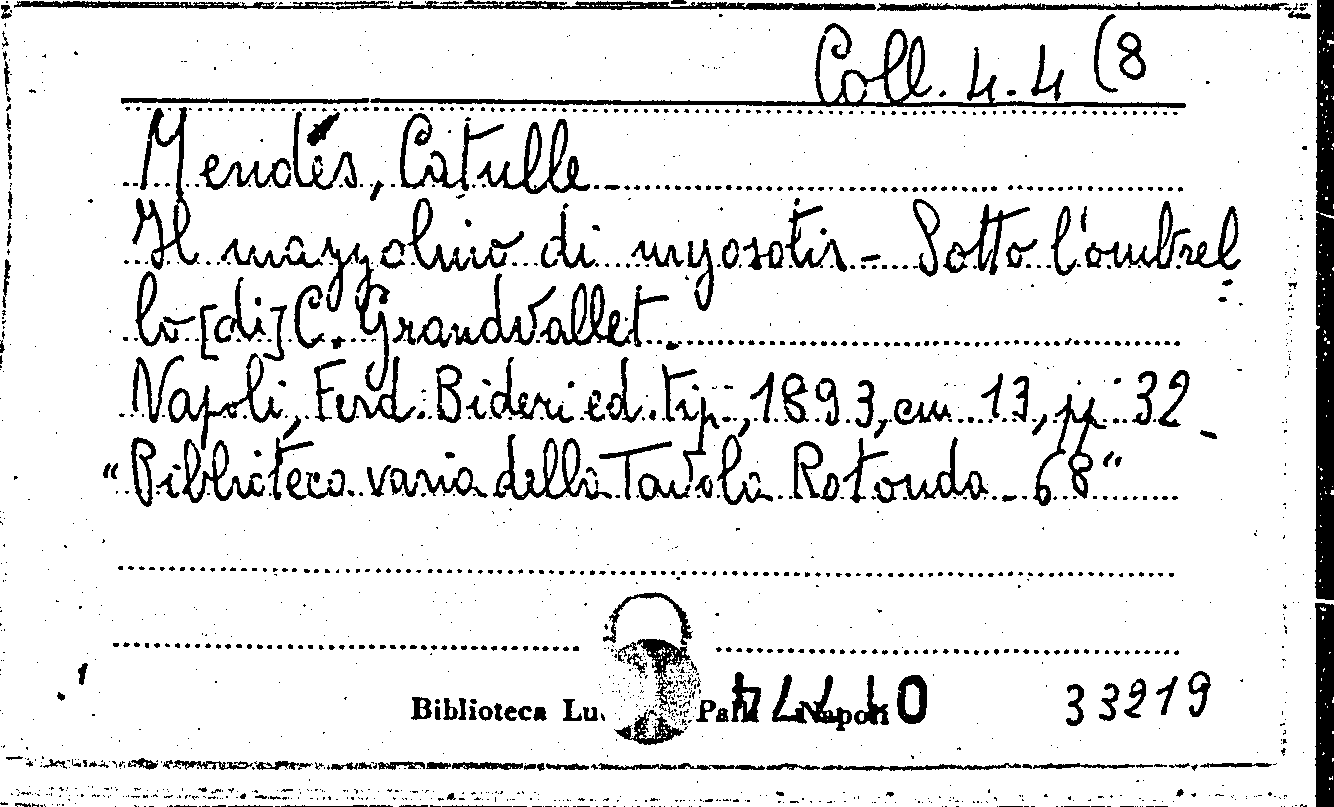 Coll. 4.4 (8
Mendés, Catulle
Il mazzolino di myosotis - Sotto l'ombrel
lo [di] C. Grandvallet.
Napoli, Ferd. Bideri ed. tip., 1893, cm. 13, pp. 32
"Biblioteca varia della Tavola Rotonda - 68"
1
Biblioteca Napoli
33219